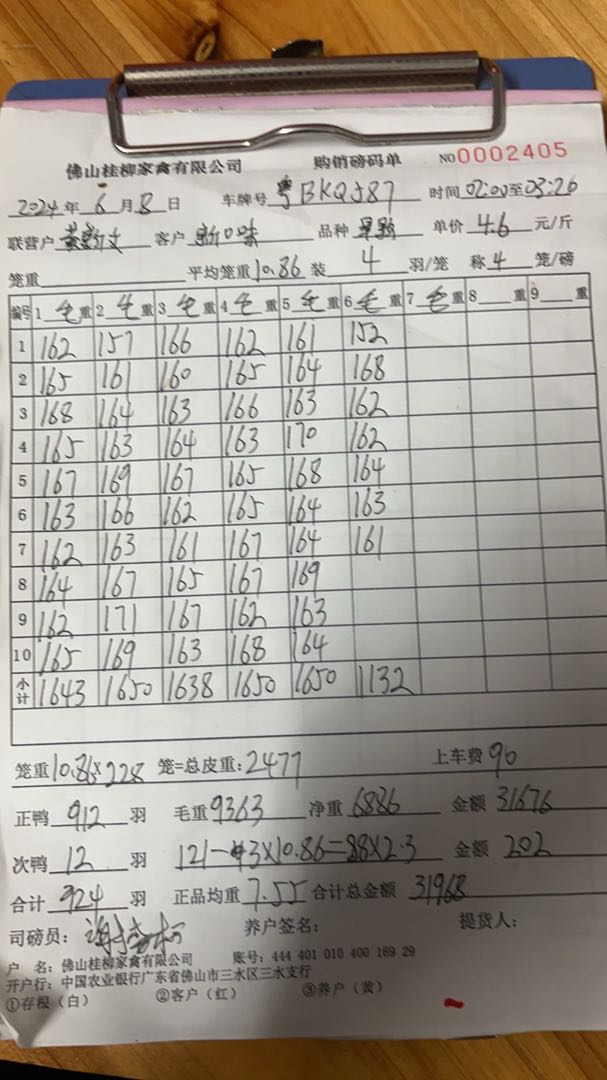 佛山桂柳家禽有限公司 购销磅码单 NO 0002405
2024年 6 月 8 日 车牌号 粤BKQJ87 时间 02:00至03:26
联营户 客户 新口味 品种 单价 4.6 元/斤
笼重 平均笼重 10.86 装 4 羽/笼 称 4 笼/磅
编号 1 毛 重 2 毛 重 3 毛 重 4 毛 重 5 毛 重 6 毛 重 7 毛 重 8 重 9 重
1 162 157 166 162 161 152
2 165 161 160 165 164 168
3 168 164 163 166 163 162
4 165 163 164 163 170 162
5 167 169 167 165 168 164
6 163 166 162 165 164 163
7 162 163 161 167 164 161
8 164 167 165 167 169
9 162 171 167 162 163
10 165 169 163 168 164
小计 1643 1650 1638 1650 1650 1132
笼重 10.86 x 228 笼=总皮重: 2477 上车费 90
正鸭 912 羽 毛重 9363 净重 6886 金额 31676
次鸭 12 羽 121-3×10.86=88×2.3 金额 202
合计 924 羽 正品均重 7.55 合计总金额 31968
司磅员: 养户签名: 提货人:
户 名: 佛山桂柳家禽有限公司 账号: 444 401 010 400 169 29
开户行: 中国农业银行广东省佛山市三水区三水支行
①存根(白) ②客户(红) ③养户(黄)